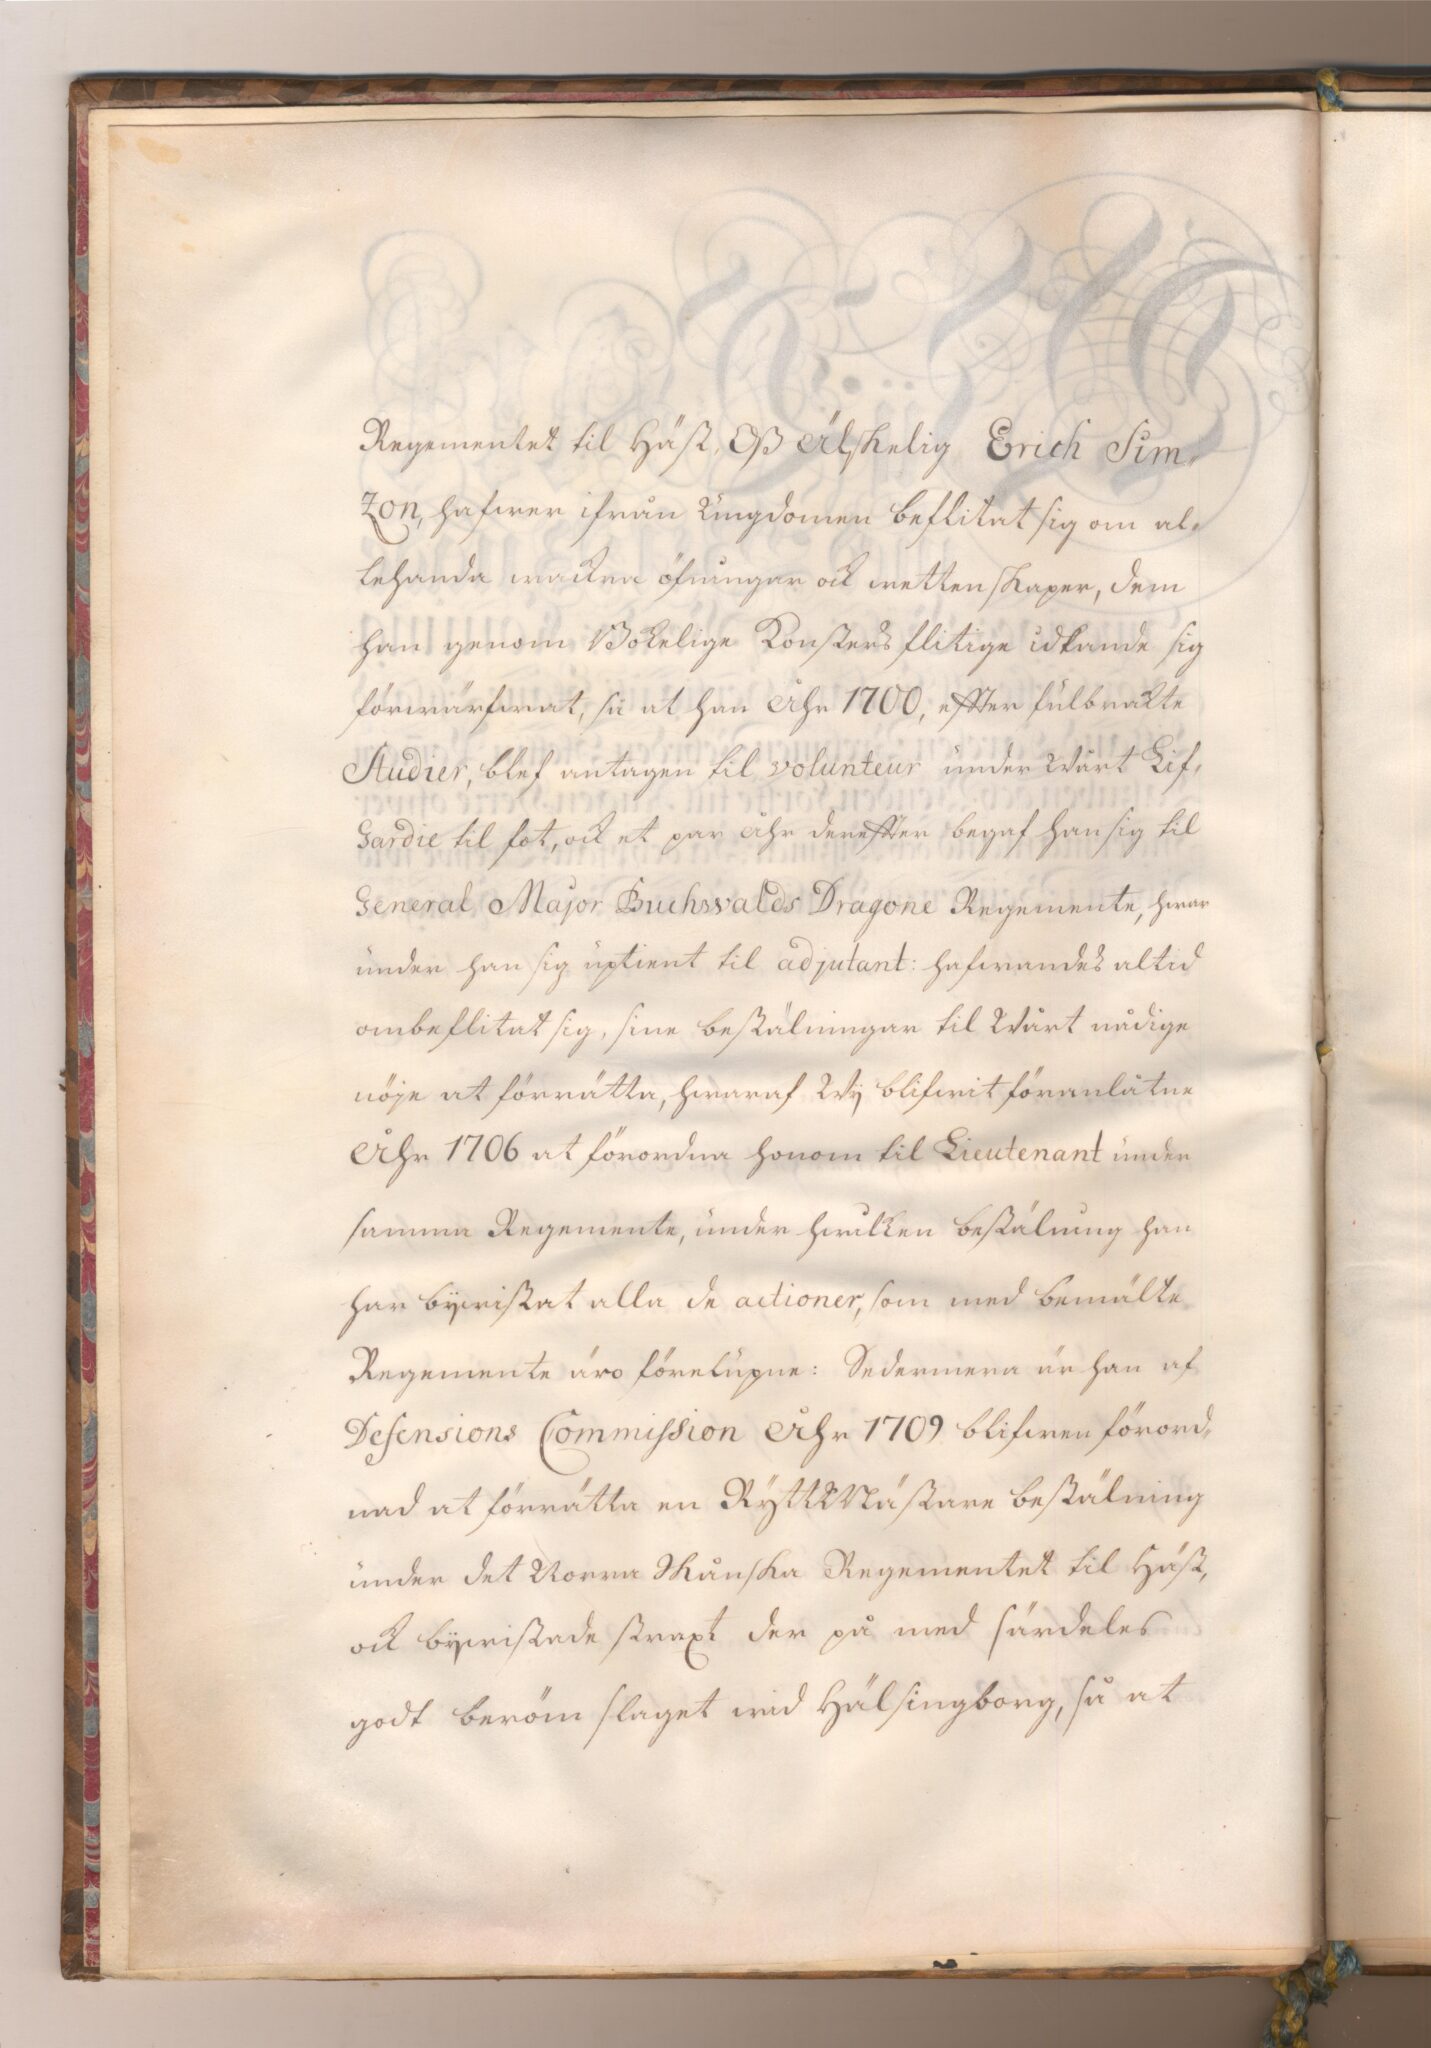 Regementet til Häst, Oß älskelig Erich Sim-
zon, hafwer ifrån Ungdomen beflitat sig om al-
lehanda wackra öfningar ock wettenskaper, dem
han genom Bokelige Konsters flitige idkande sig
förwärfwat, så at han åhr 1700, effter fulbrakte
Studier, blef antagen til volunteur under Wårt Lif-
Gardie til fot, ock et par åhr dereffter begaf han sig til
General Major Buchwalds Dragone Regemente, hwar
under han sig uptient til adjutant: hafwandes altid
ombeflitat sig, sine beställningar til Wårt nådige
nöje at förrätta, hwaraf Wij blifwit föranlåtne
åhr 1706 at förordna honom til Lieutenant under
samma Regemente, under hwilken bestälning han
har bijwistat alla de actioner, som med bemälte
Regemente äro förelupne: Sedermera är han af
Defensions Commission åhr 1709 blifwen förord-
nad at förrätta en RyttMästare bestälning
under det Norra Skånska Regementet til Häst,
ock bijwistade straxt der på med särdeles
godt beröm slaget wid Hälsingborg, så at